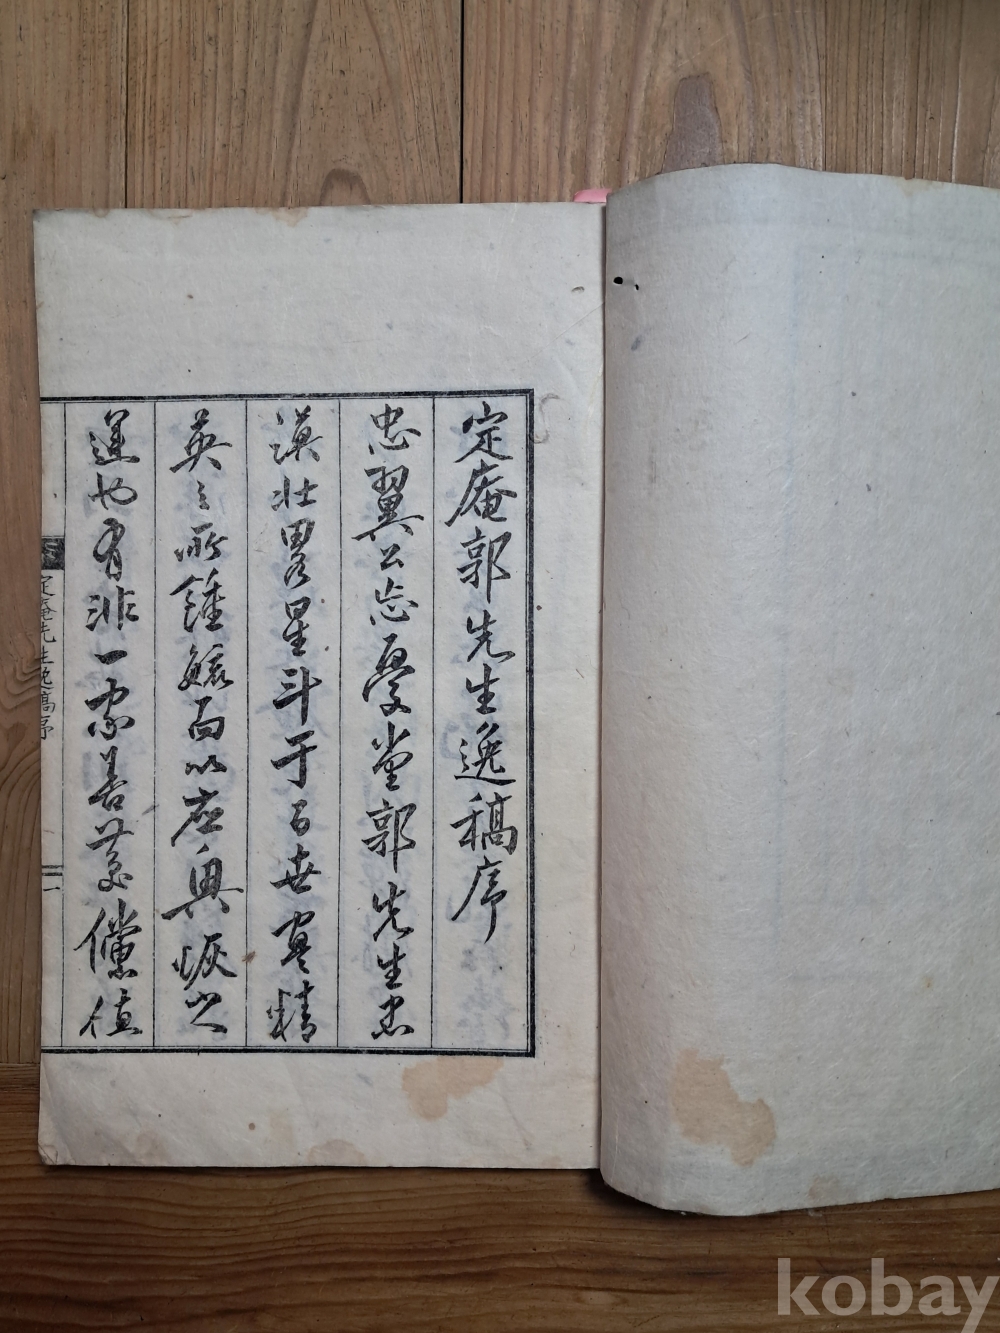 定庵郭先生逸稿序
忠翼公忘憂堂郭先生忠
謨壯畧星斗于百世寔精
英之所鍾毓而以應興恢之
運也有非一家善慶儻値
定庵先生逸稿序
一
kobay